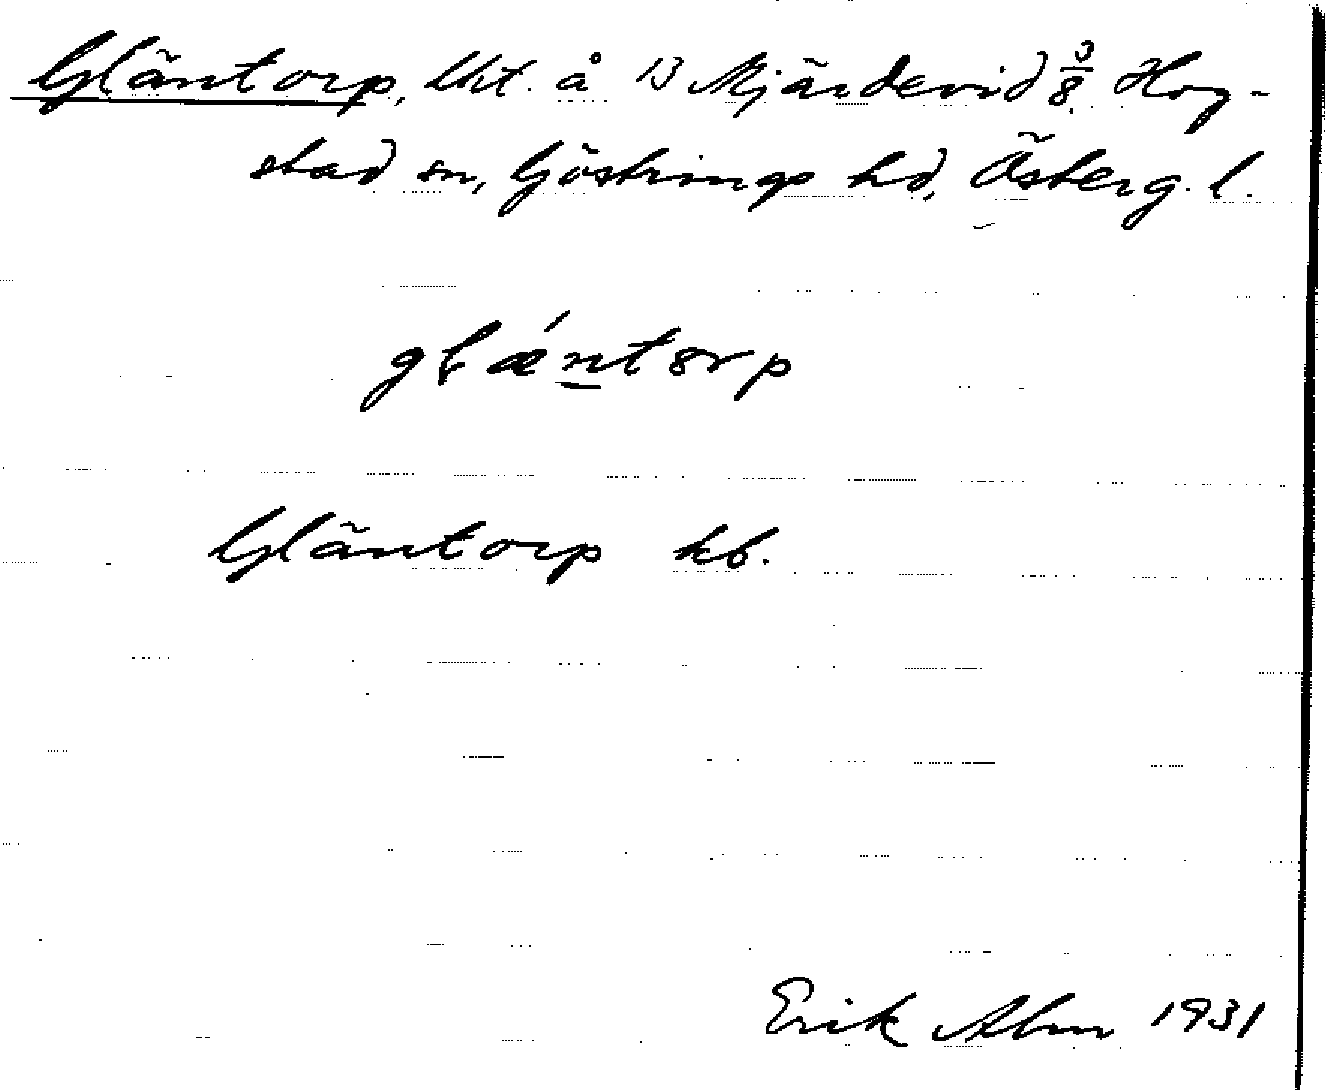 Gläntorp, lht. å 13 Mjärdevid 3/8 Hog-
stad sn, Göstrings hd, Österg. l.
glæ´ntørp
Gläntorp kb.
Erik Alm 1931